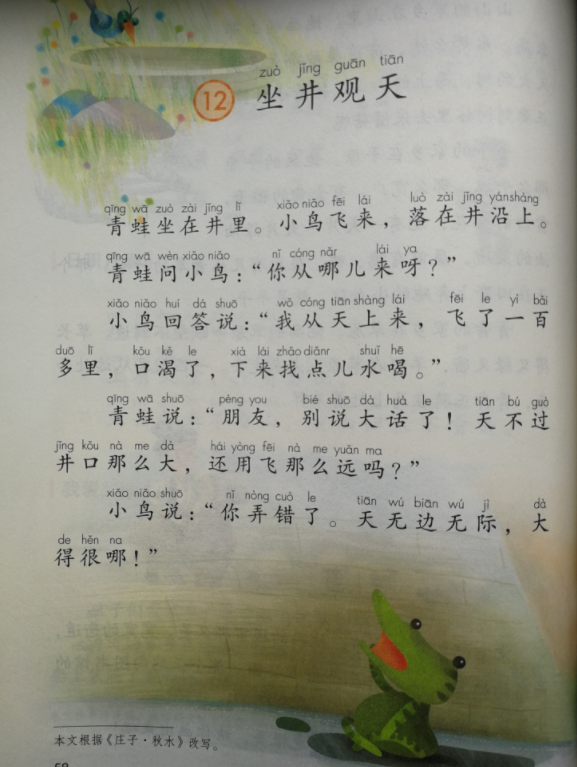 zuò jǐng guān tiān
12 坐井观天
qīng wā zuò zài jǐng lǐ xiǎo niǎo fēi lái luò zài jǐng yán shàng
青蛙坐在井里。小鸟飞来，落在井沿上。
qīng wā wèn xiǎo niǎo nǐ cóng nǎr lái ya
青蛙问小鸟：“你从哪儿来呀？”
xiǎo niǎo huí dá shuō wǒ cóng tiān shàng lái fēi le yì bǎi
小鸟回答说：“我从天上来，飞了一百
duō lǐ kǒu kě le xià lái zhǎo diǎnr shuǐ hē
多里，口渴了，下来找点儿水喝。”
qīng wā shuō péng you bié shuō dà huà le tiān bú guò
青蛙说：“朋友，别说大话了！天不过
jǐng kǒu nà me dà hái yòng fēi nà me yuǎn ma
井口那么大，还用飞那么远吗？”
xiǎo niǎo shuō nǐ nòng cuò le tiān wú biān wú jì dà
小鸟说：“你弄错了。天无边无际，大
de hěn na
得很哪！”
本文根据《庄子·秋水》改写。